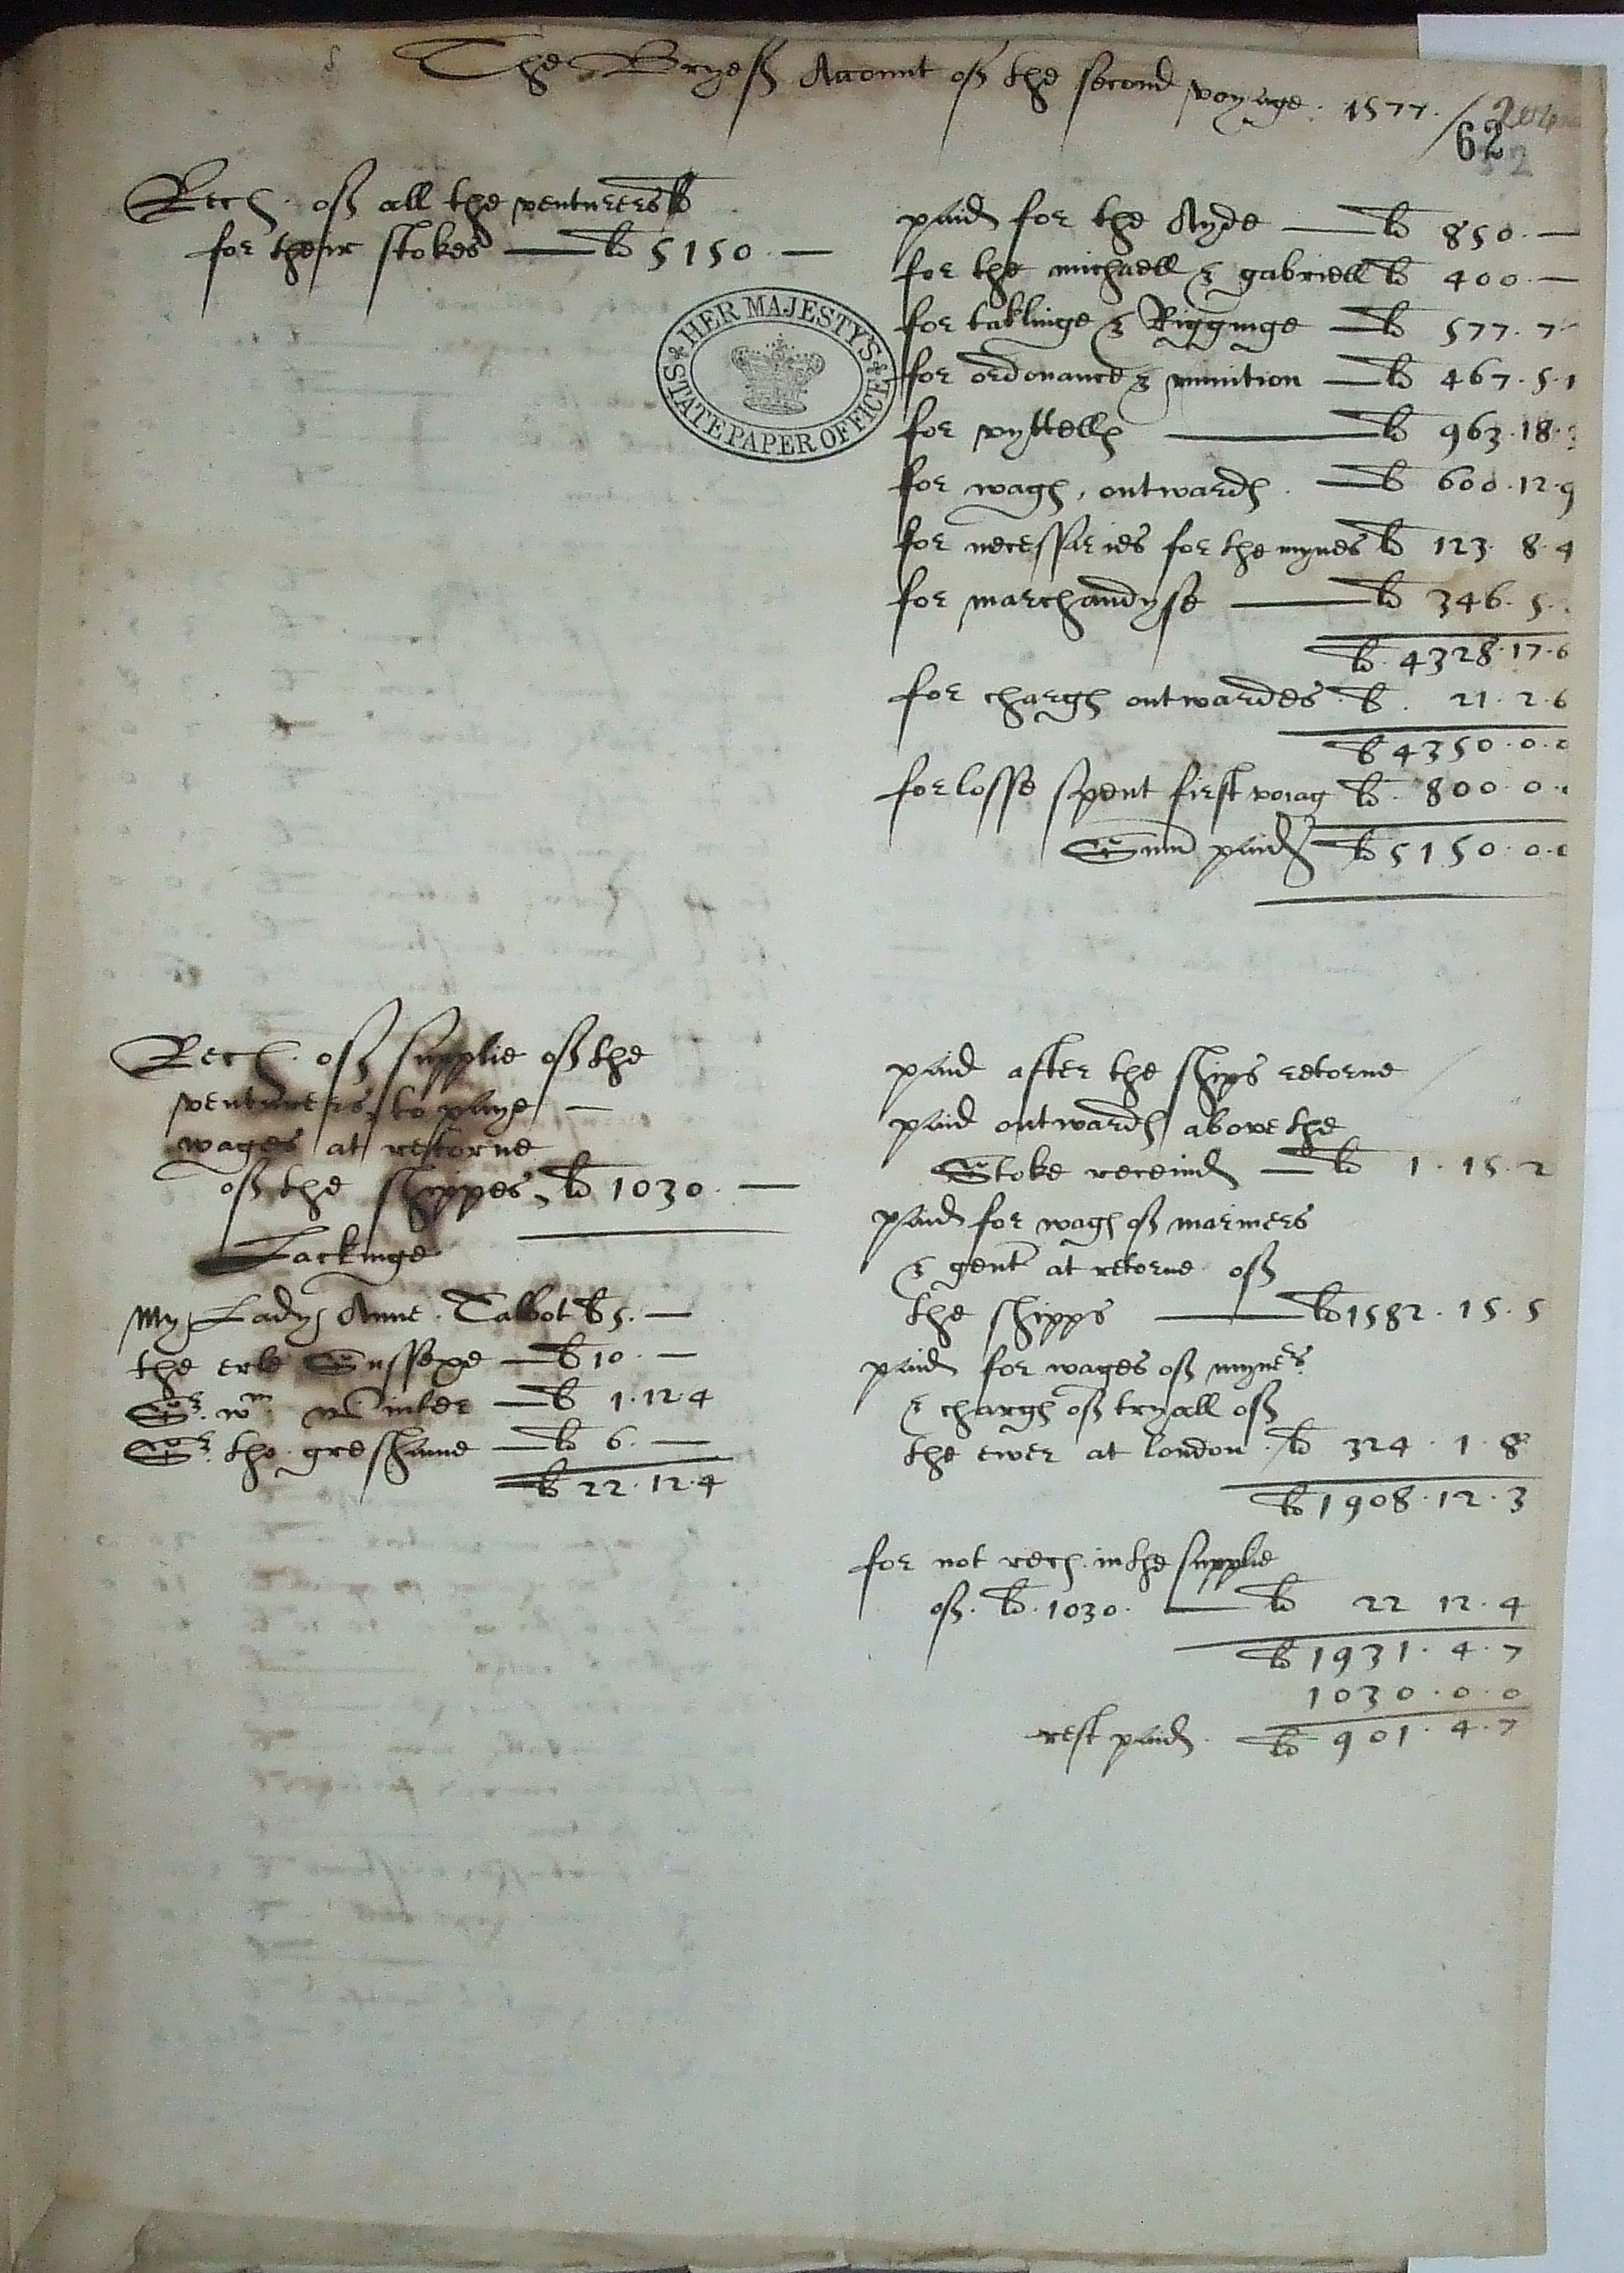 The Bryeff Account off the second voyage. 1577.
62
Rec. off all the venturers
for their stokes — li 5150. —
HER MAJESTY'S
STATE PAPER OFFICE
paid for the Ayde — li 850. —
for the michaell & gabriell li 400. —
for taklinge & Rigginge — li 577. 7
for ordonance & munition — li 467. 5. 1
for vyttells — li 963. 18.
for wages, outwards. — li 600. 12. 9
for necessaries for the mynes li 123. 8. 4
for marchandyse — li 346. 5.
li. 4328. 17. 6
for charges outwardes li. 21. 2. 6
li 4350. 0. 0
for losse spent first voiag li. 800. 0.
Sum paid li 5150. 0. 0
Rec. off supplie off the
venturers, to paye —
wages at restorne
off the shippes, li 1030. —
Lackinge
My Lady Anne. Talbot li 5. —
the erle Sussexe — li 10. —
Sr. wm winter — li 1. 12. 4
Sr. tho. greshame — li 6. —
li 22. 12. 4
paid after the ships retorne
paid outwards above the
Stoke received — li 1. 15. 2
paid for wages off mariners
& gent at retorne off
the shipps — li 1582. 15. 5
paid for wages off myners
& charges off tryall off
the ewer at london. li 324. 1. 8
li 1908. 12. 3
for not rec. in the supplie
off. li. 1030. — li 22 12. 4
li 1931. 4. 7
1030. 0. 0
rest paid. li 901. 4. 7